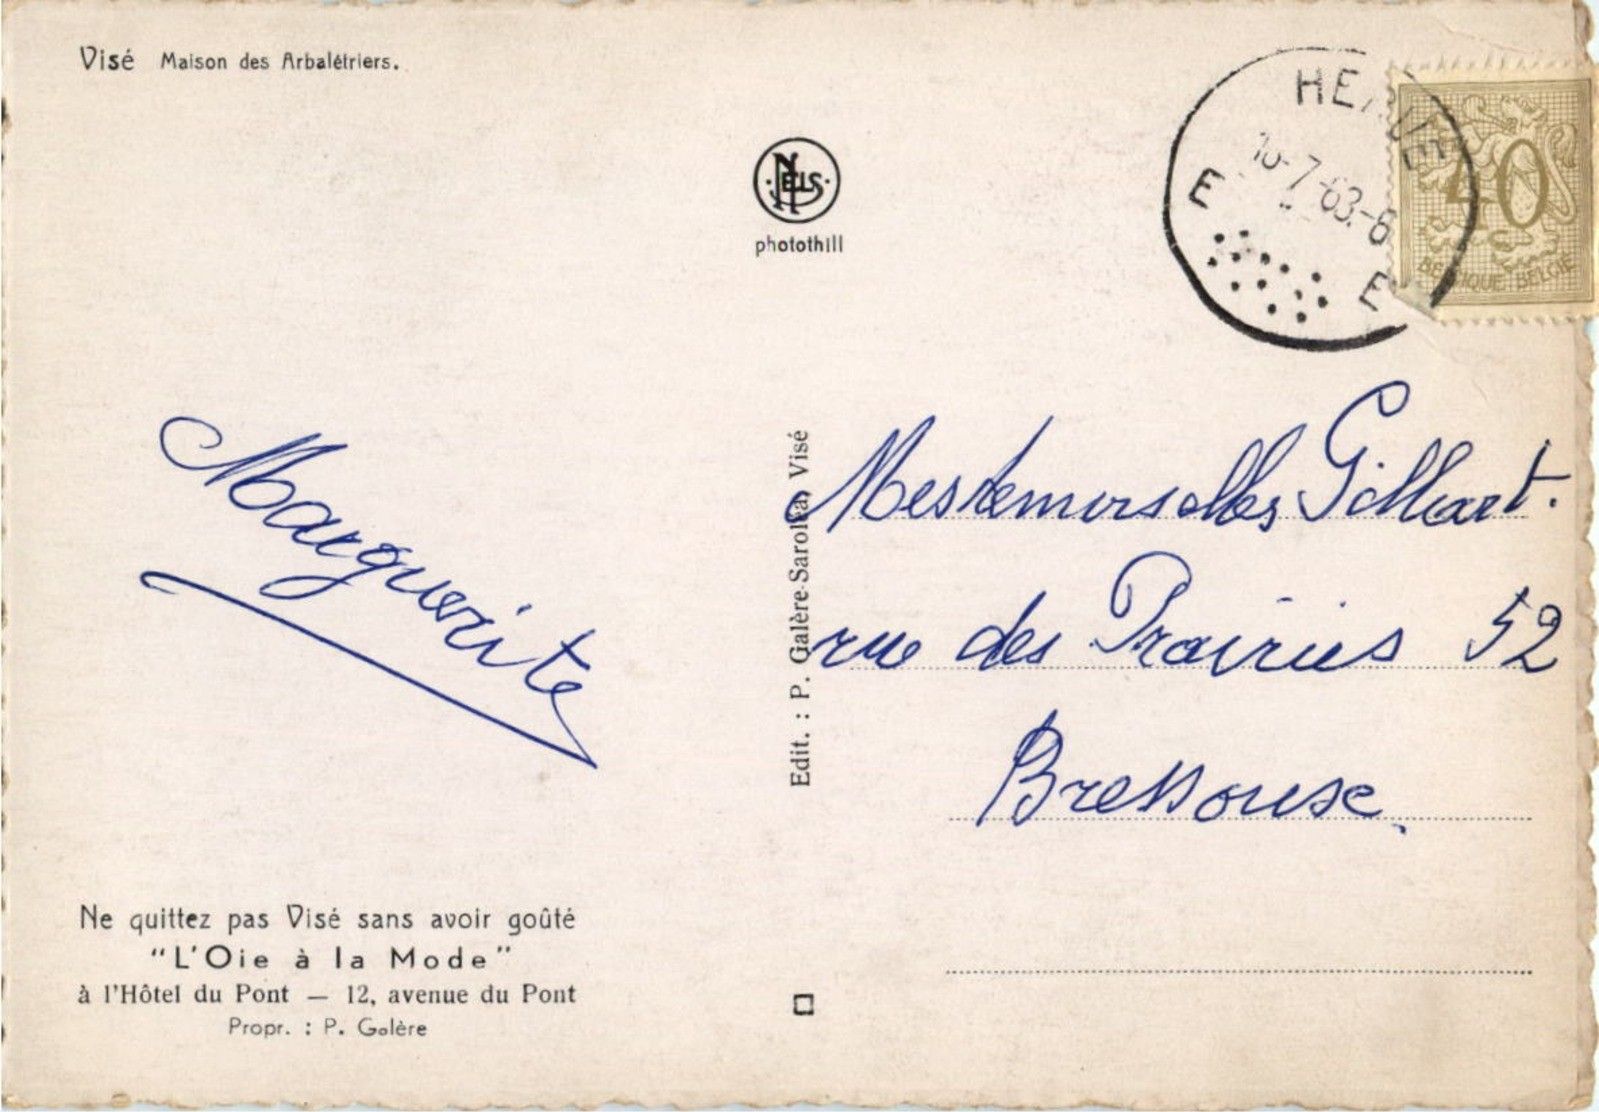 Visé Maison des Arbalétriers.
NELS
photothill
HERVE
-7-63.-
E E
40
BELGIQUE BELGIË
Marguerite
Edit. : P. Galère-Sarolea, Visé
Mesdemoiselles Gilliart.
rue des Prairies 52
Bressouse
Ne quittez pas Visé sans avoir goûté
"L'Oie à la Mode"
à l'Hôtel du Pont — 12, avenue du Pont
Propr. : P. Galère